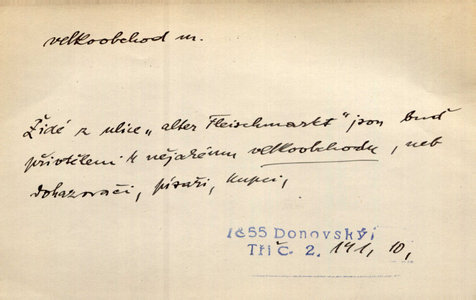 velkoobchod m.
Židé z ulice „alter Fleischmarkt" jsou buď
přivtěleni k nějakému velkoobchodu, neb
dohazovači, písaři, kupci,
1855 Donovský
Tři č. 2. 191, 10,